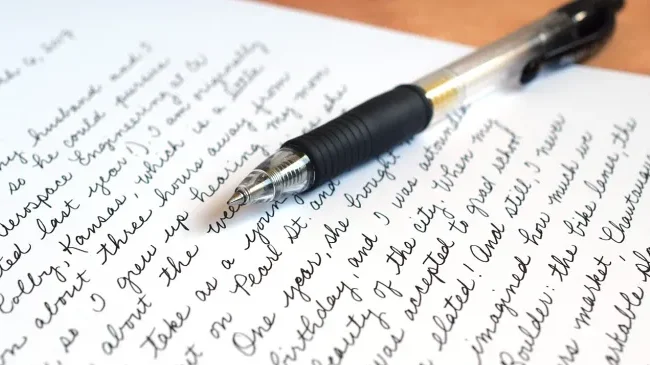 my husband and I
so he could pursue
Aerospace Engineering at
ted last year! I am originally
Colby, Kansas, which is a little
on about three hours away from
, so I grew up hearing my mom
about the she
take as a
on Pearl St. and
One year, she brought
birthday, and I was astounded
eauty of the city. When my
was accepted to grad school
elated! And still, I never
imagined how much we
Boulder: the bike lanes, the
rs market, Chautauqu
arkable pla